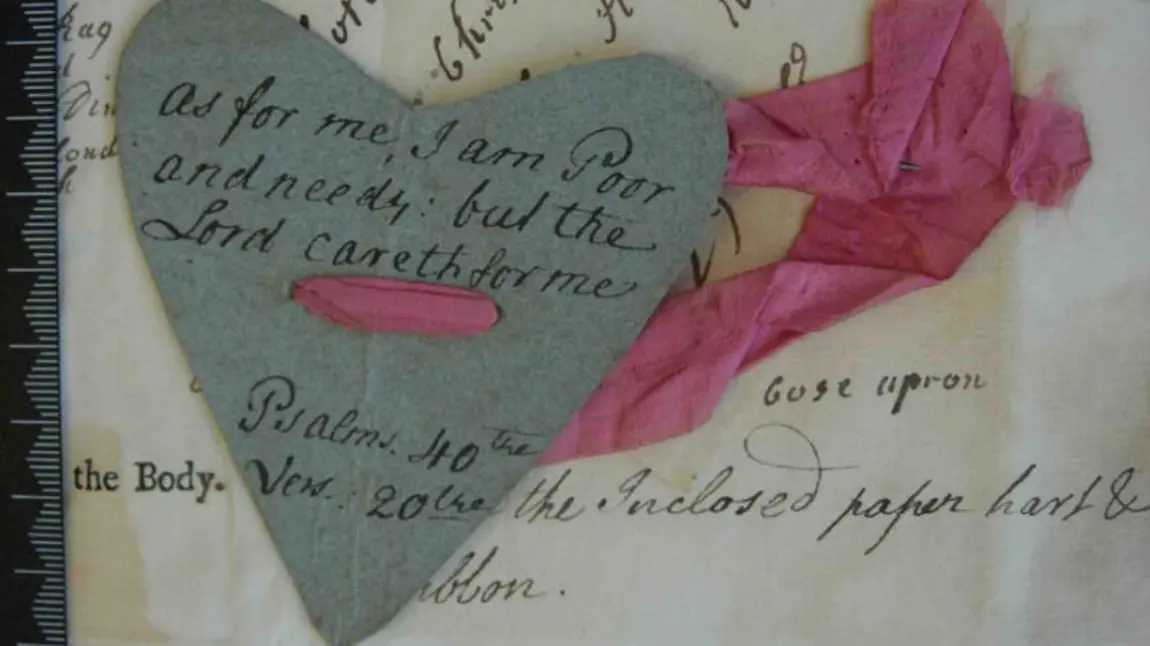 as for me, I am Poor
and needy: but the
Lord careth for me
Psalms. 40the
Vers. 20the
bose apron
the Body. the Inclosed paper hart &
ibbon.